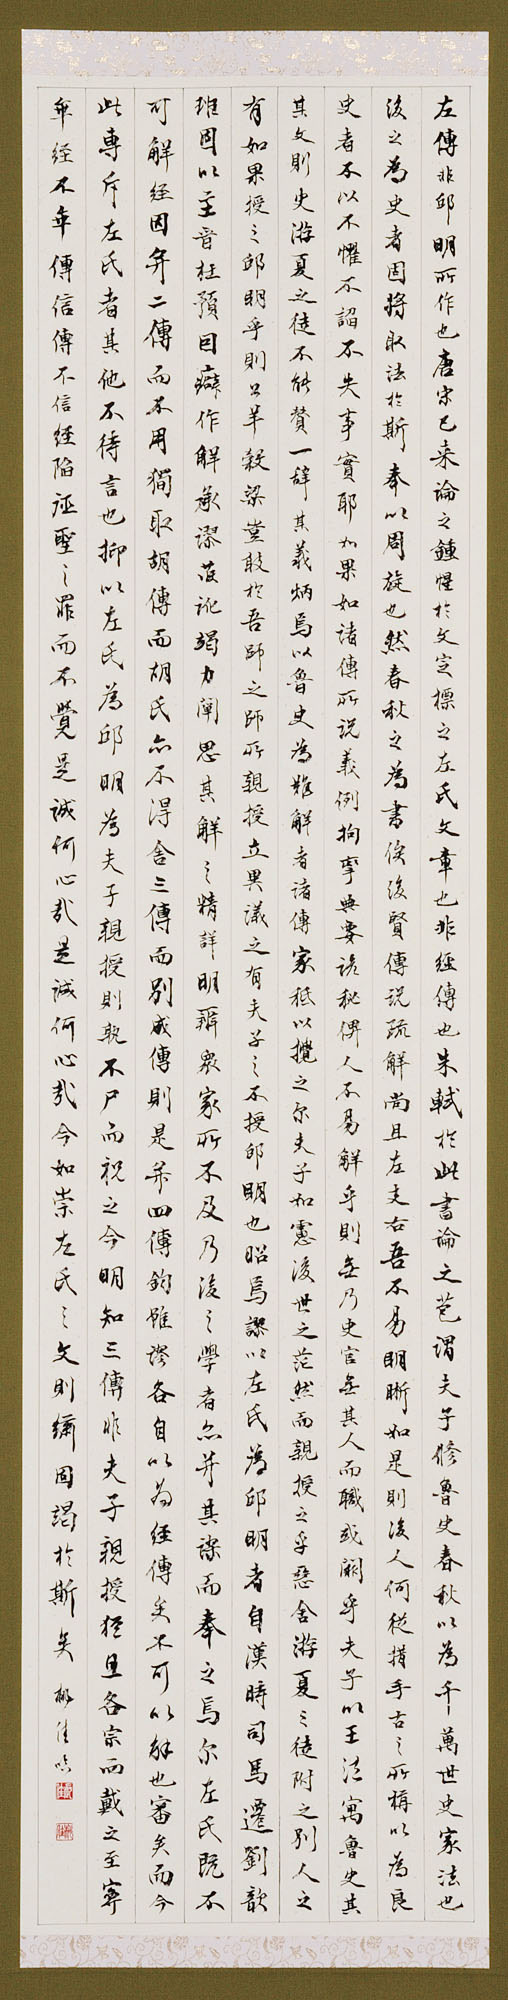 左傳非邱明所作也唐宋已来論之鍾惺於文定標之左氏文章也非經傳也朱軾於此書論之謂夫子修魯史春秋以為千萬世史家法也
後之為史者固將取法於斯奉以周旋也然春秋之為書俟後賢傳说疏解尚且左支右吾不易明晰如是則後人何從措手古之所稱以為良
史者不以不懼不諂不失事實耶如果如諸傳所説義例拘牽典要詭秘俾人不易解乎則無乃史官無其人而職或闕乎夫子以王法寓魯史其
其文則史游夏之徒不能贊一辭其義炳焉以魯史為難解者諸傳家秪以攪之尔夫子如慮後世之茫然而親授之乎惡舍游夏之徒附之别人之
有如果授之邱明乎則公羊穀梁豈敢於吾師之師所親授立異議之有夫子之不授邱明也昭焉謬以左氏為邱明者自漢時司馬遷劉歆
班固以至晉杜預因癖作解承謬竭力闡思其解之精詳明辯衆家所不及乃後之學者亦并其謬而奉之焉尔左氏既不
可解經因弁二傳而不用獨取胡傳而胡氏亦不得舍三傳而别成傳則是并四傳鈞雖謬各自以為經傳矣不可以解也審矣而今
此專斥左氏者其他不待言也抑以左氏為邱明為夫子親授則孰不尸而祝之今明知三傳非夫子親授猶且各宗而戴之至寧
弁經不弁傳信傳不信經陷誣聖之罪而不覺是誠何心哉是誠何心哉今如崇左氏之文則固謁於斯矣